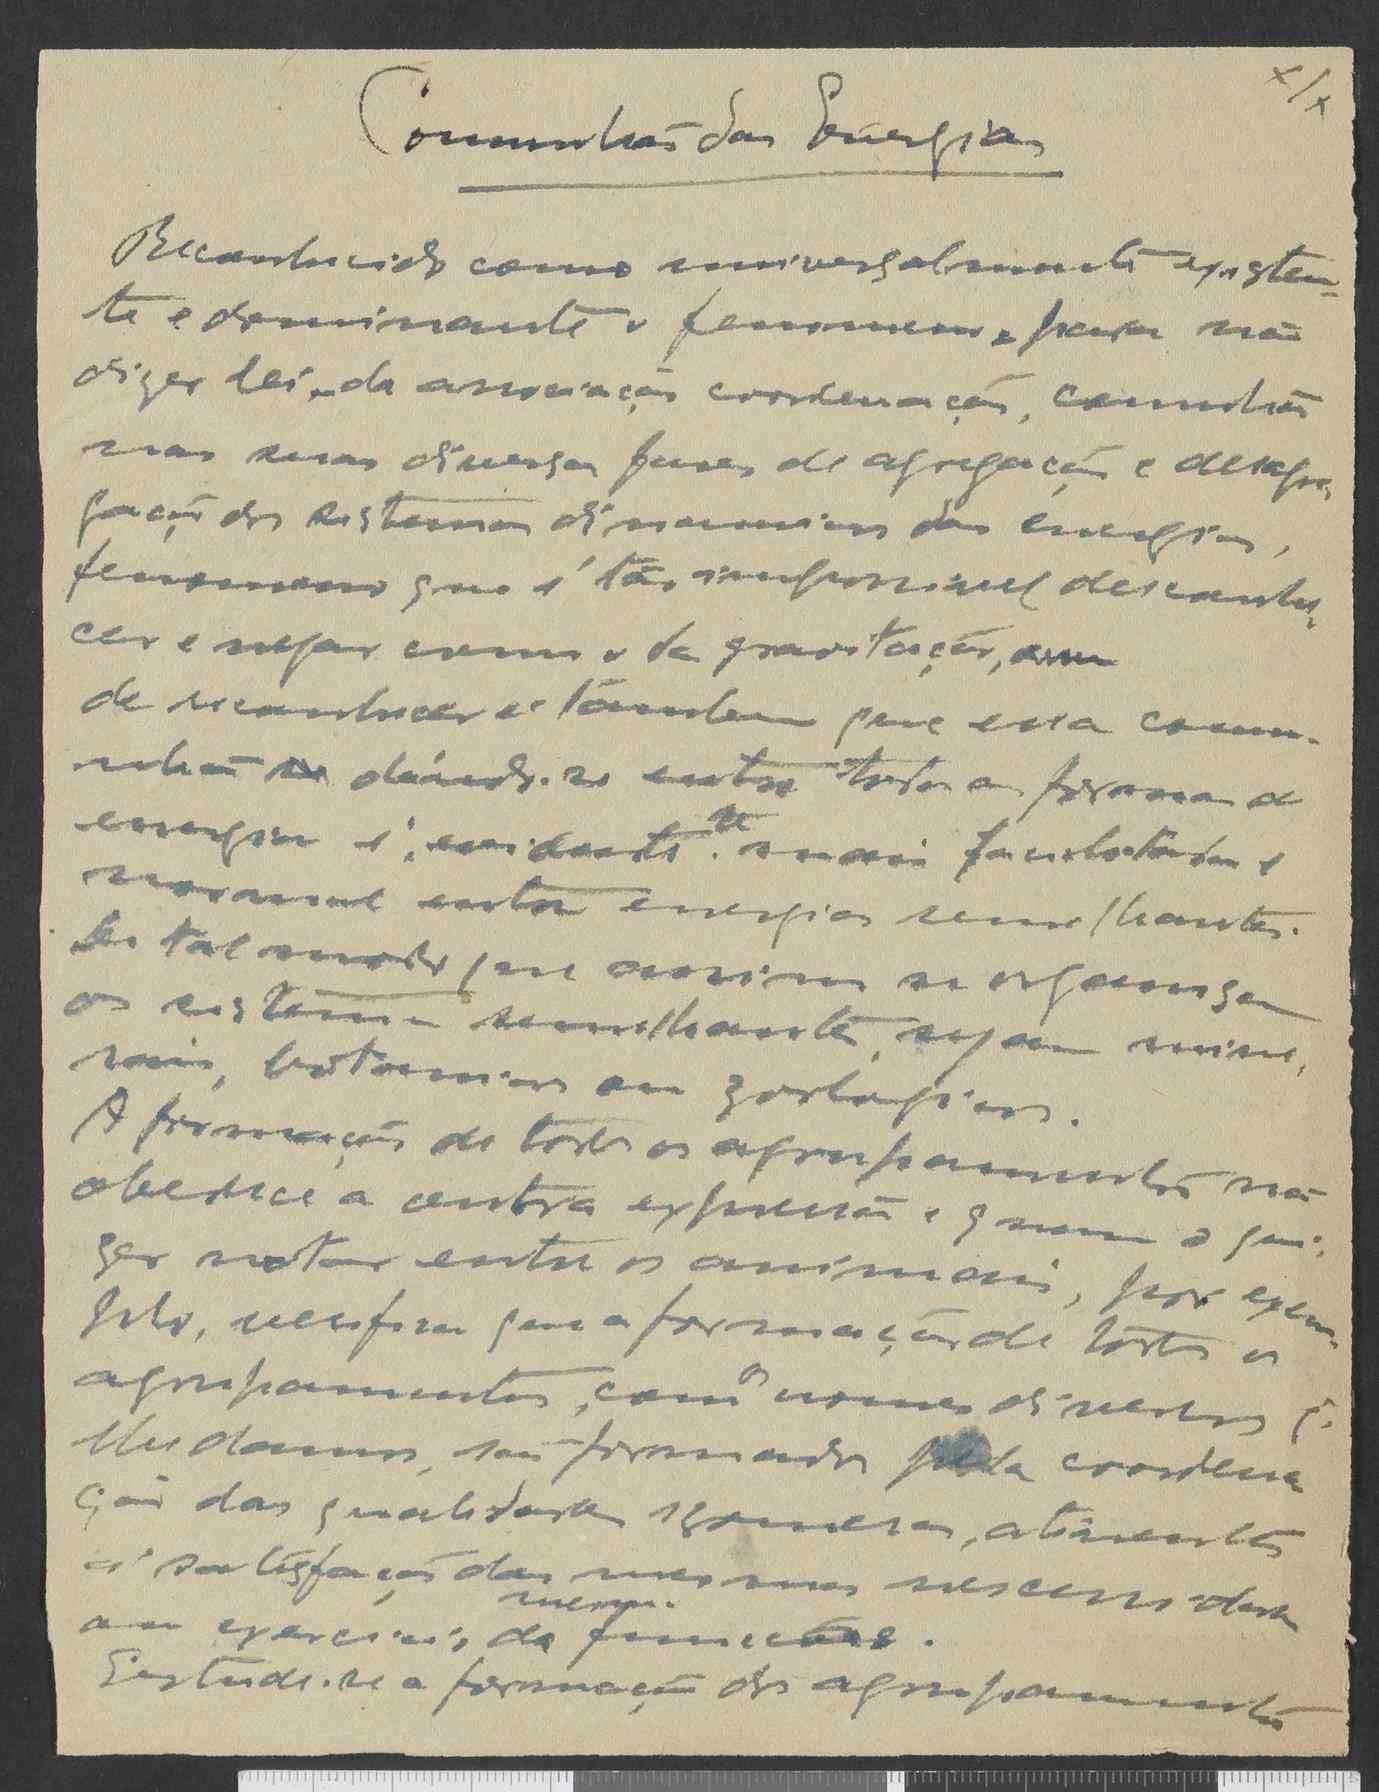 x/x
Comunhão das Energias
Reconhecido como universalmente existen-
te e dominante o fenomeno, para não
dizer lei, da associação coordenação, comunhão
nas suas diversas fases de agregação e desagre-
gação dos sistemas dinamicos das energias,
fenomeno que é tão impossivel desconhe-
cer e negar como o da gravitação,
de reconhecer é tambem que essa comu-
nhão dando-se entre todas as formas de
energia é, evidente.te mais facilitada e
normal entre energias semelhantes.
De tal modo que assim se organizam
os sistemas semelhantes, sejam mine-
rais, botanicos ou zoologicos.
A formação de todos os agrupamentos não
obedece a outra expressão e quem o qui-
zer notar entre os animais, por exem-
plo, verifica que a formação de todos os
agrupamentos, com os nomes diversos q.
lhe damos, são formados pela coordena
ção das qualidades, atinentes
á satisfação das mesmas necessidades
ou exercicio da mesm. funções.
Estude-se a formação dos agrupamentos